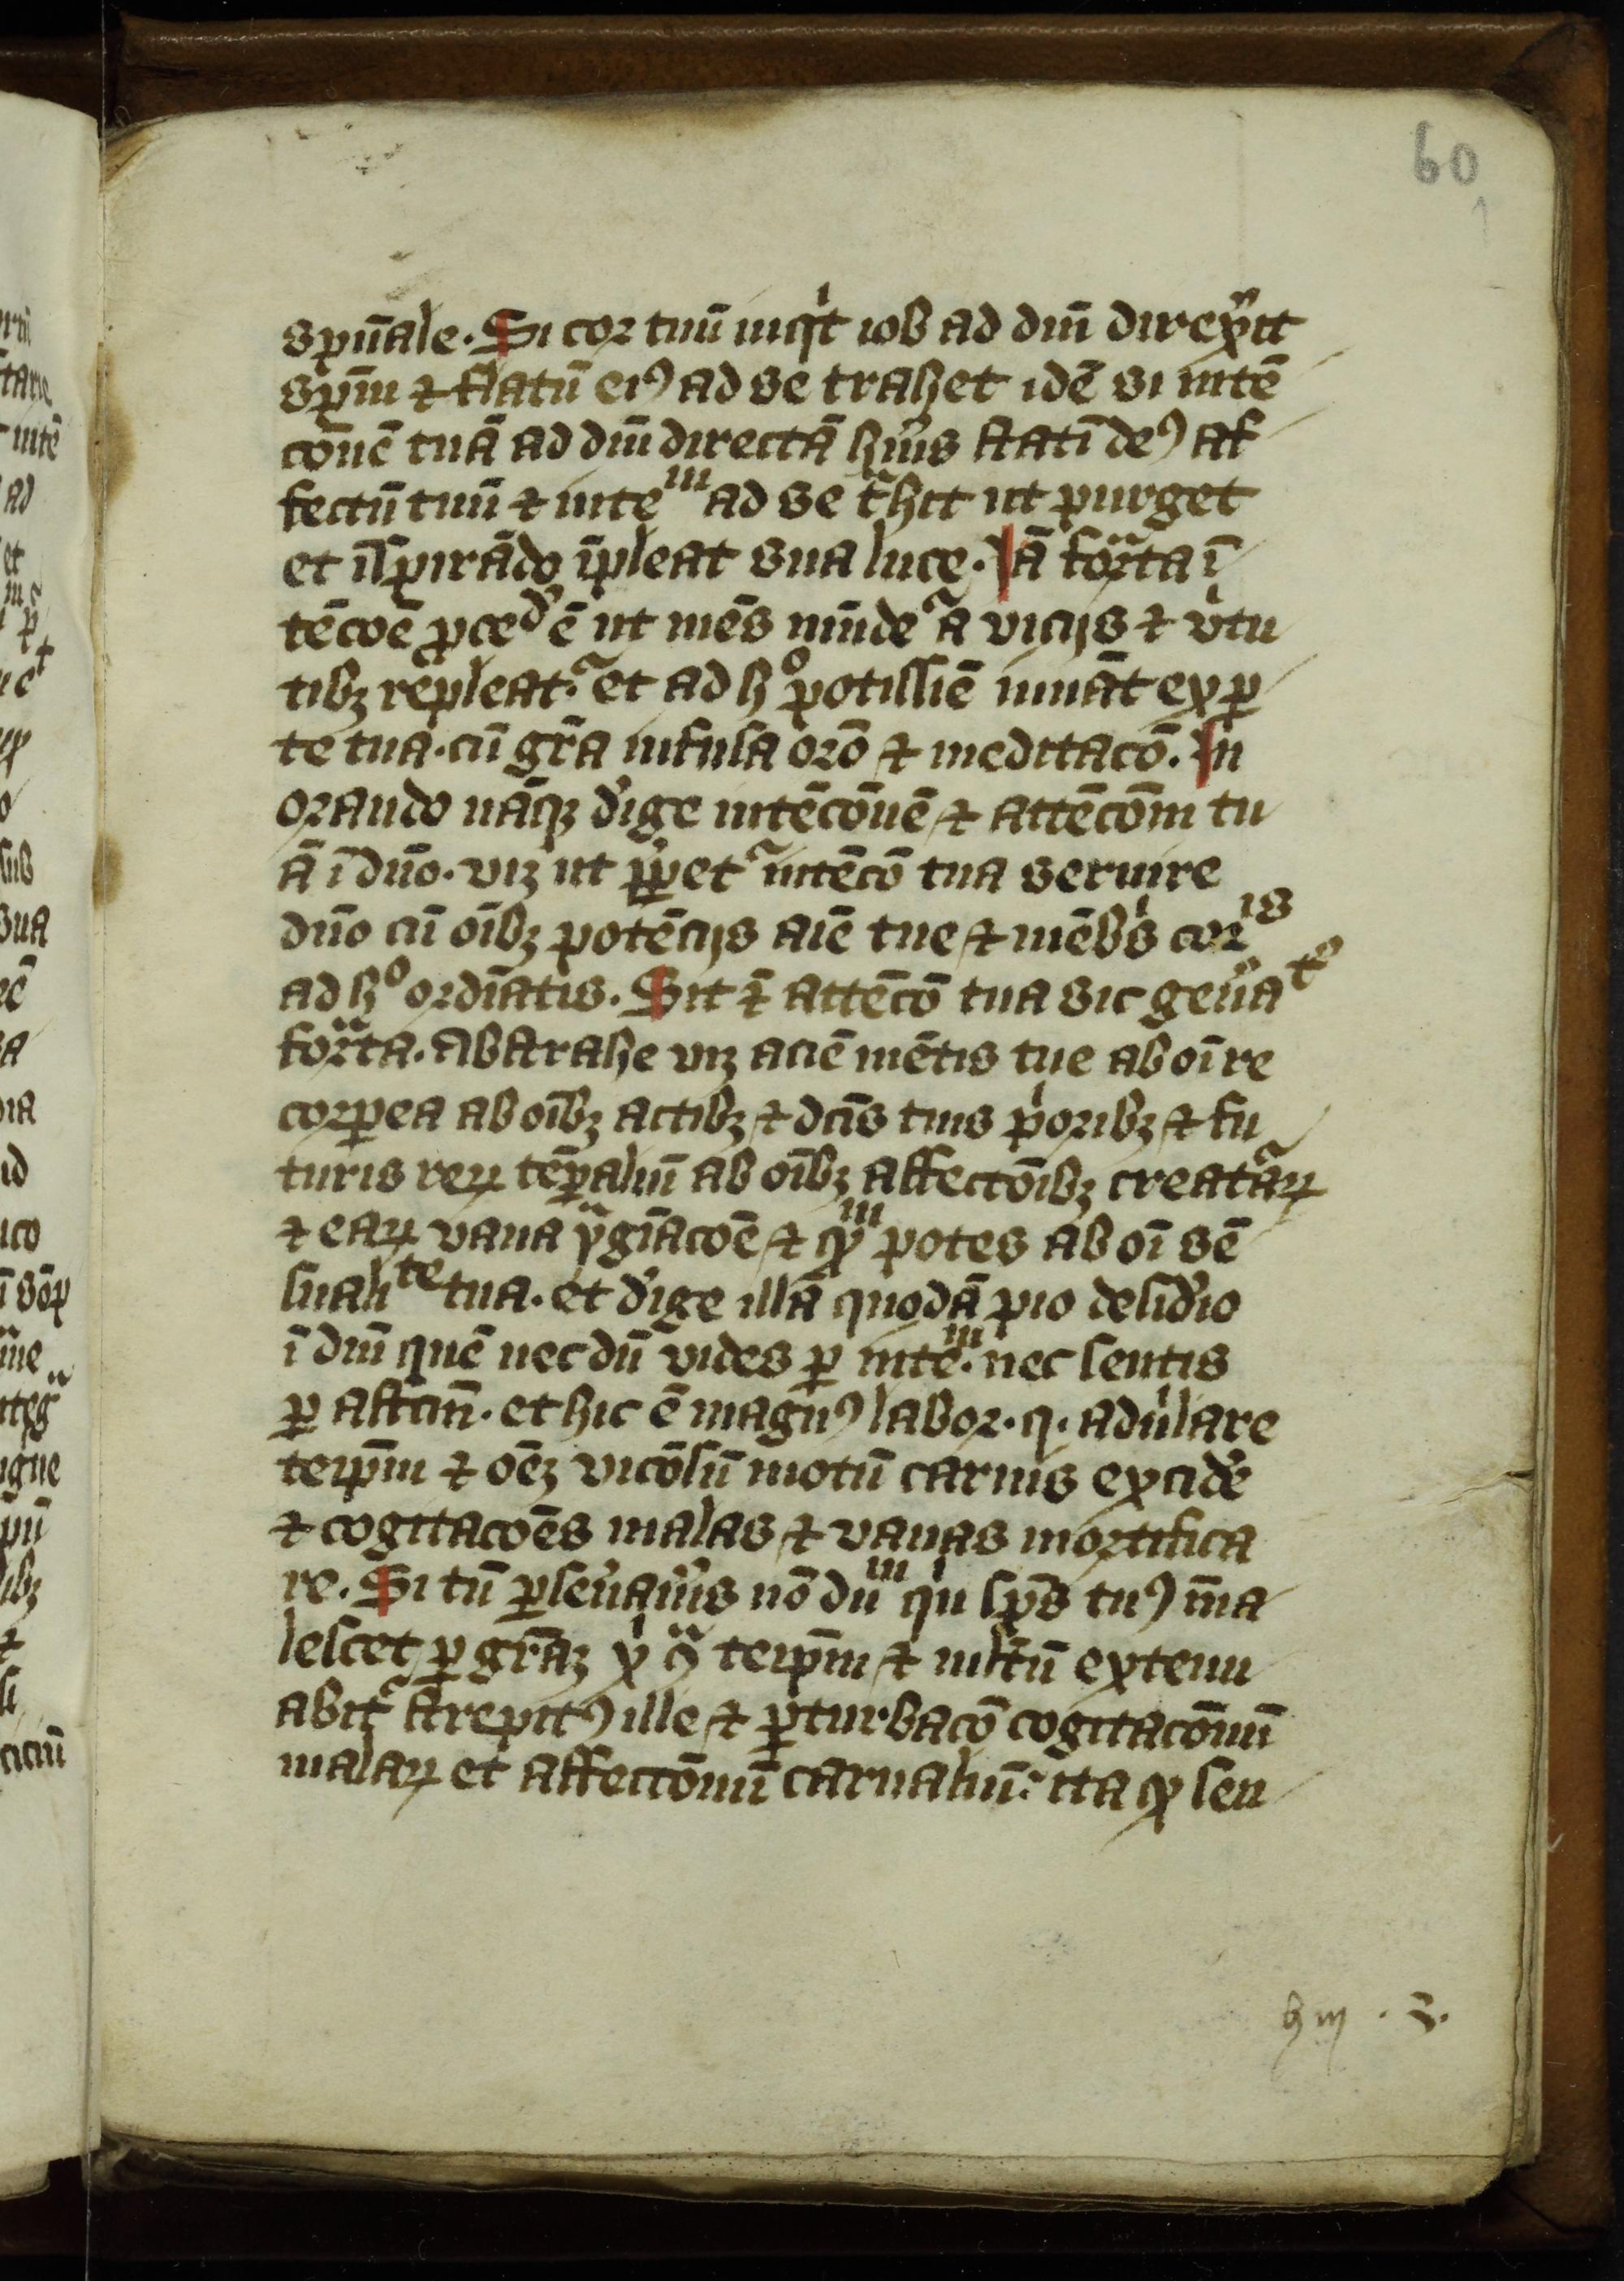 60
spūale. Si cor tuū inqͥt iob ad dm̄ direxͥit
spm̄ ⁊ flatū eiꝯ ad se trahet idē si intē
cōnē tuā ad dm̄ directā hūis statī deꝯ af
fectū tuū ⁊ inteᵐ ad se t̃hit ut purget
et īspirādo īpleat sua luce. Iā fortᷓa ī
tēcoē ꝓcedͤ ē ut mēs mūdet᷑ a vicijs ⁊ v̾tu
tibꝫ repleat᷑ et ad hͦ potissīe iuuāt ex ꝑ
te tua. cū gr̄a infusa orō ⁊ meditacō. In
orando nāqꝫ dͥige intēcōnē ⁊ attēcōm tu
ā ī dn̄o. vꝫ ut ꝑpet᷑ intēcō tua seruire
dn̄o cū oībꝫ potēcijs aīe tue ⁊ mēbͥs corⁱˢ
ad hͦ ordīatis. Sit ⁊̄ attēcō tua sic gen̾at᷑
fortᷓa. Abstrahe vꝫ aciē mētis tue ab oī re
corꝑea ab oībꝫ actibꝫ ⁊ dc̄is tuis pͥoribꝫ ⁊ fu
turis reꝝ tēꝑaliū ab oībꝫ affectōībꝫ creatᷓaꝝ
⁊ eaꝝ vana ẏgīacōe ⁊ qᷓᵐ potes ab oī sē
sualiᵗᵉ tua. et dͥige illā quodā pio desid̾io
ī dm̄ quē nec dū vides ꝑ inteᵐ. nec sentis
ꝑ affc̄m. et hic ē magnꝯ labor. q. adulare
teip̄m ⁊ oēꝫ vicōsū motū carnis excid̾e
⁊ cogitacōes malas ⁊ vanas mortifica
re. Si tn̄ ꝑseu̾au̾is nō diuᵐ qͥn sp̄s tuꝯ īua
lescet ꝑ gr̄aꝫ xͥ ꝯᷓ teip̄m ⁊ ml̄tū extenu
abit᷑ strepitꝯ ille ⁊ ꝑturbacō cogitacōnū
malaꝝ et affectōnū carnaliū. ita qꝫ sen